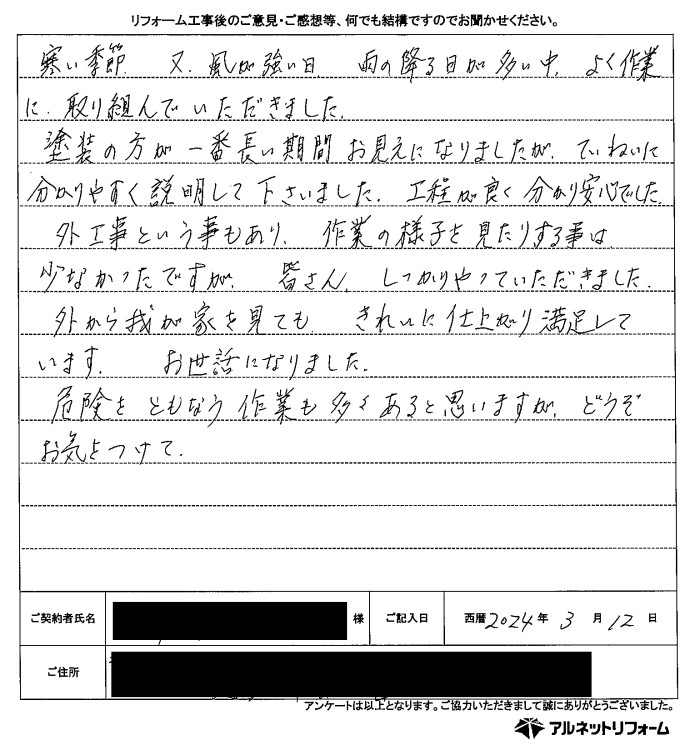 リフォーム工事後のご意見・ご感想等、何でも結構ですのでお聞かせください。
寒い季節、又、風が強い日 雨の降る日が多い中、よく作業
に、取り組んでいただきました。
塗装の方が一番長い期間お見えになりましたが、ていねいに
分かりやすく説明して下さいました。工程が良く分かり安心でした
外工事という事もあり、作業の様子を見たりする事は
少なかったですが、皆さん、しっかりやっていただきました。
外から我が家を見ても、きれいに仕上がり満足して
います。 お世話になりました。
危険をともなう作業も多くあると思いますが、どうぞ
お気をつけて。
ご契約者氏名 様 ご記入日 西暦 2024 年 3 月 12 日
ご住所
アンケートは以上となります。ご協力いただきまして誠にありがとうございました。
アルネットリフォーム